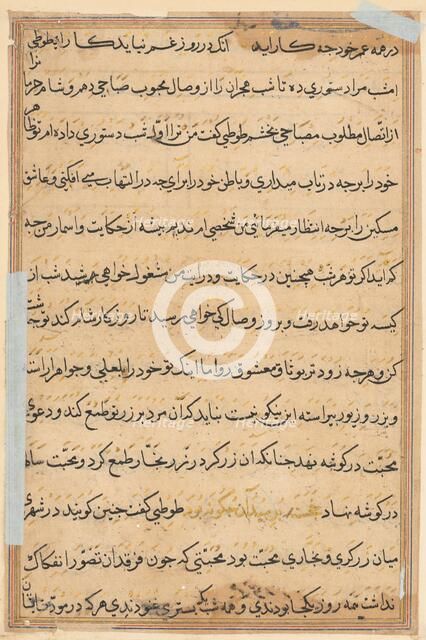 در همه عمر خود چه کار آید آنک در روز غم نیاید کار ای طوطی
امشب مرا دستوری ده تا شب هجران را از وصال محبوب صباحی دهم و شام
از اتصال مطلوب مصباحی بخشم طوطی کفت من ترا اول شب دستوری داده ام تو
خود را بر چه در تاب میداری و باطن خود را برای چه در التهاب می افکنی و عاشق
مسکین را بر چه انتظار میفرمائی من شخصی ام ندیم پیشه از حکایت و اسمار من چه
کم آید اکر تو هر شب همچنین در حکایت و درایت من مشغول خواهی شد شب از
کیسه تو خواهد رفت و بروز وصال کی خواهی رسید تا روزکار شام کند تو چ
کن و هرچه زودتر بوثاق معشوق رو اما اینک تو خود را بلعلی و جواهر آراسته
و بزر و زیور پیراسته این نیکو نیست نباید که آن مرد بر زر تو طمع کند و دعوی
محبت در کوشه نهد چنانکه آن زرکر در زر نجار طمع کرد و محبت
در کوشه نهاد خجسته پرسید آن چکونه بود طوطی کفت چنین کویند در شهری
میان زرکری و نجاری محبت بود محبتی که چون فرقدان تصور انفکاک
نداشت همه روز یکجا بودندی و همه شب یک بستری غنودندی هر که در مودت
Heritage